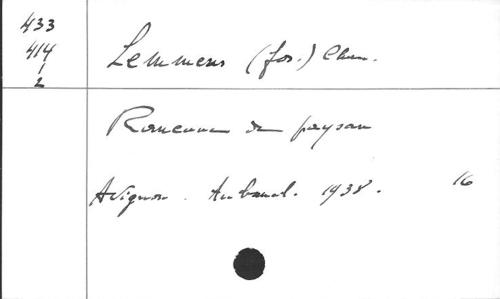 433
414
1
2
Lemmens (Jos.) Chan.
Rancune de paysan
Avignon. Aubanel. 1938. 16